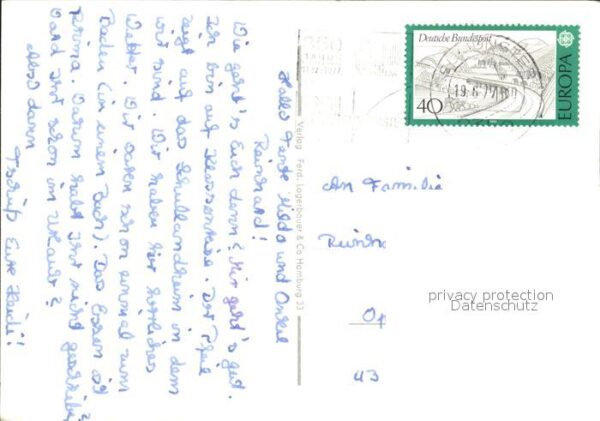 Hallo Tante Hilde und Onkel
Reinhard!
Wie geht's Euch denn? Mir geht's gut.
Ich bin auf Klassenreise. Der Pfeil
zeigt auf das Schullandheim in dem
wir sind. Wir haben hier herrliches
Wetter. Wir waren schon einmal zum
Baden (in einem Bach). Das Essen ist
Prima. Warum habt Ihr nicht geschrieben?
Ward Ihr schon im Urlaub?
Also dann
Tschüß Eure Heidi!
Verlag Ferd. Lagerbauer & Co Hamburg 33
Deutsche Bundespost
40
EUROPA
350
JAHRE
19.6.77
An Familie
Reinh
Op
43
privacy protection
Datenschutz